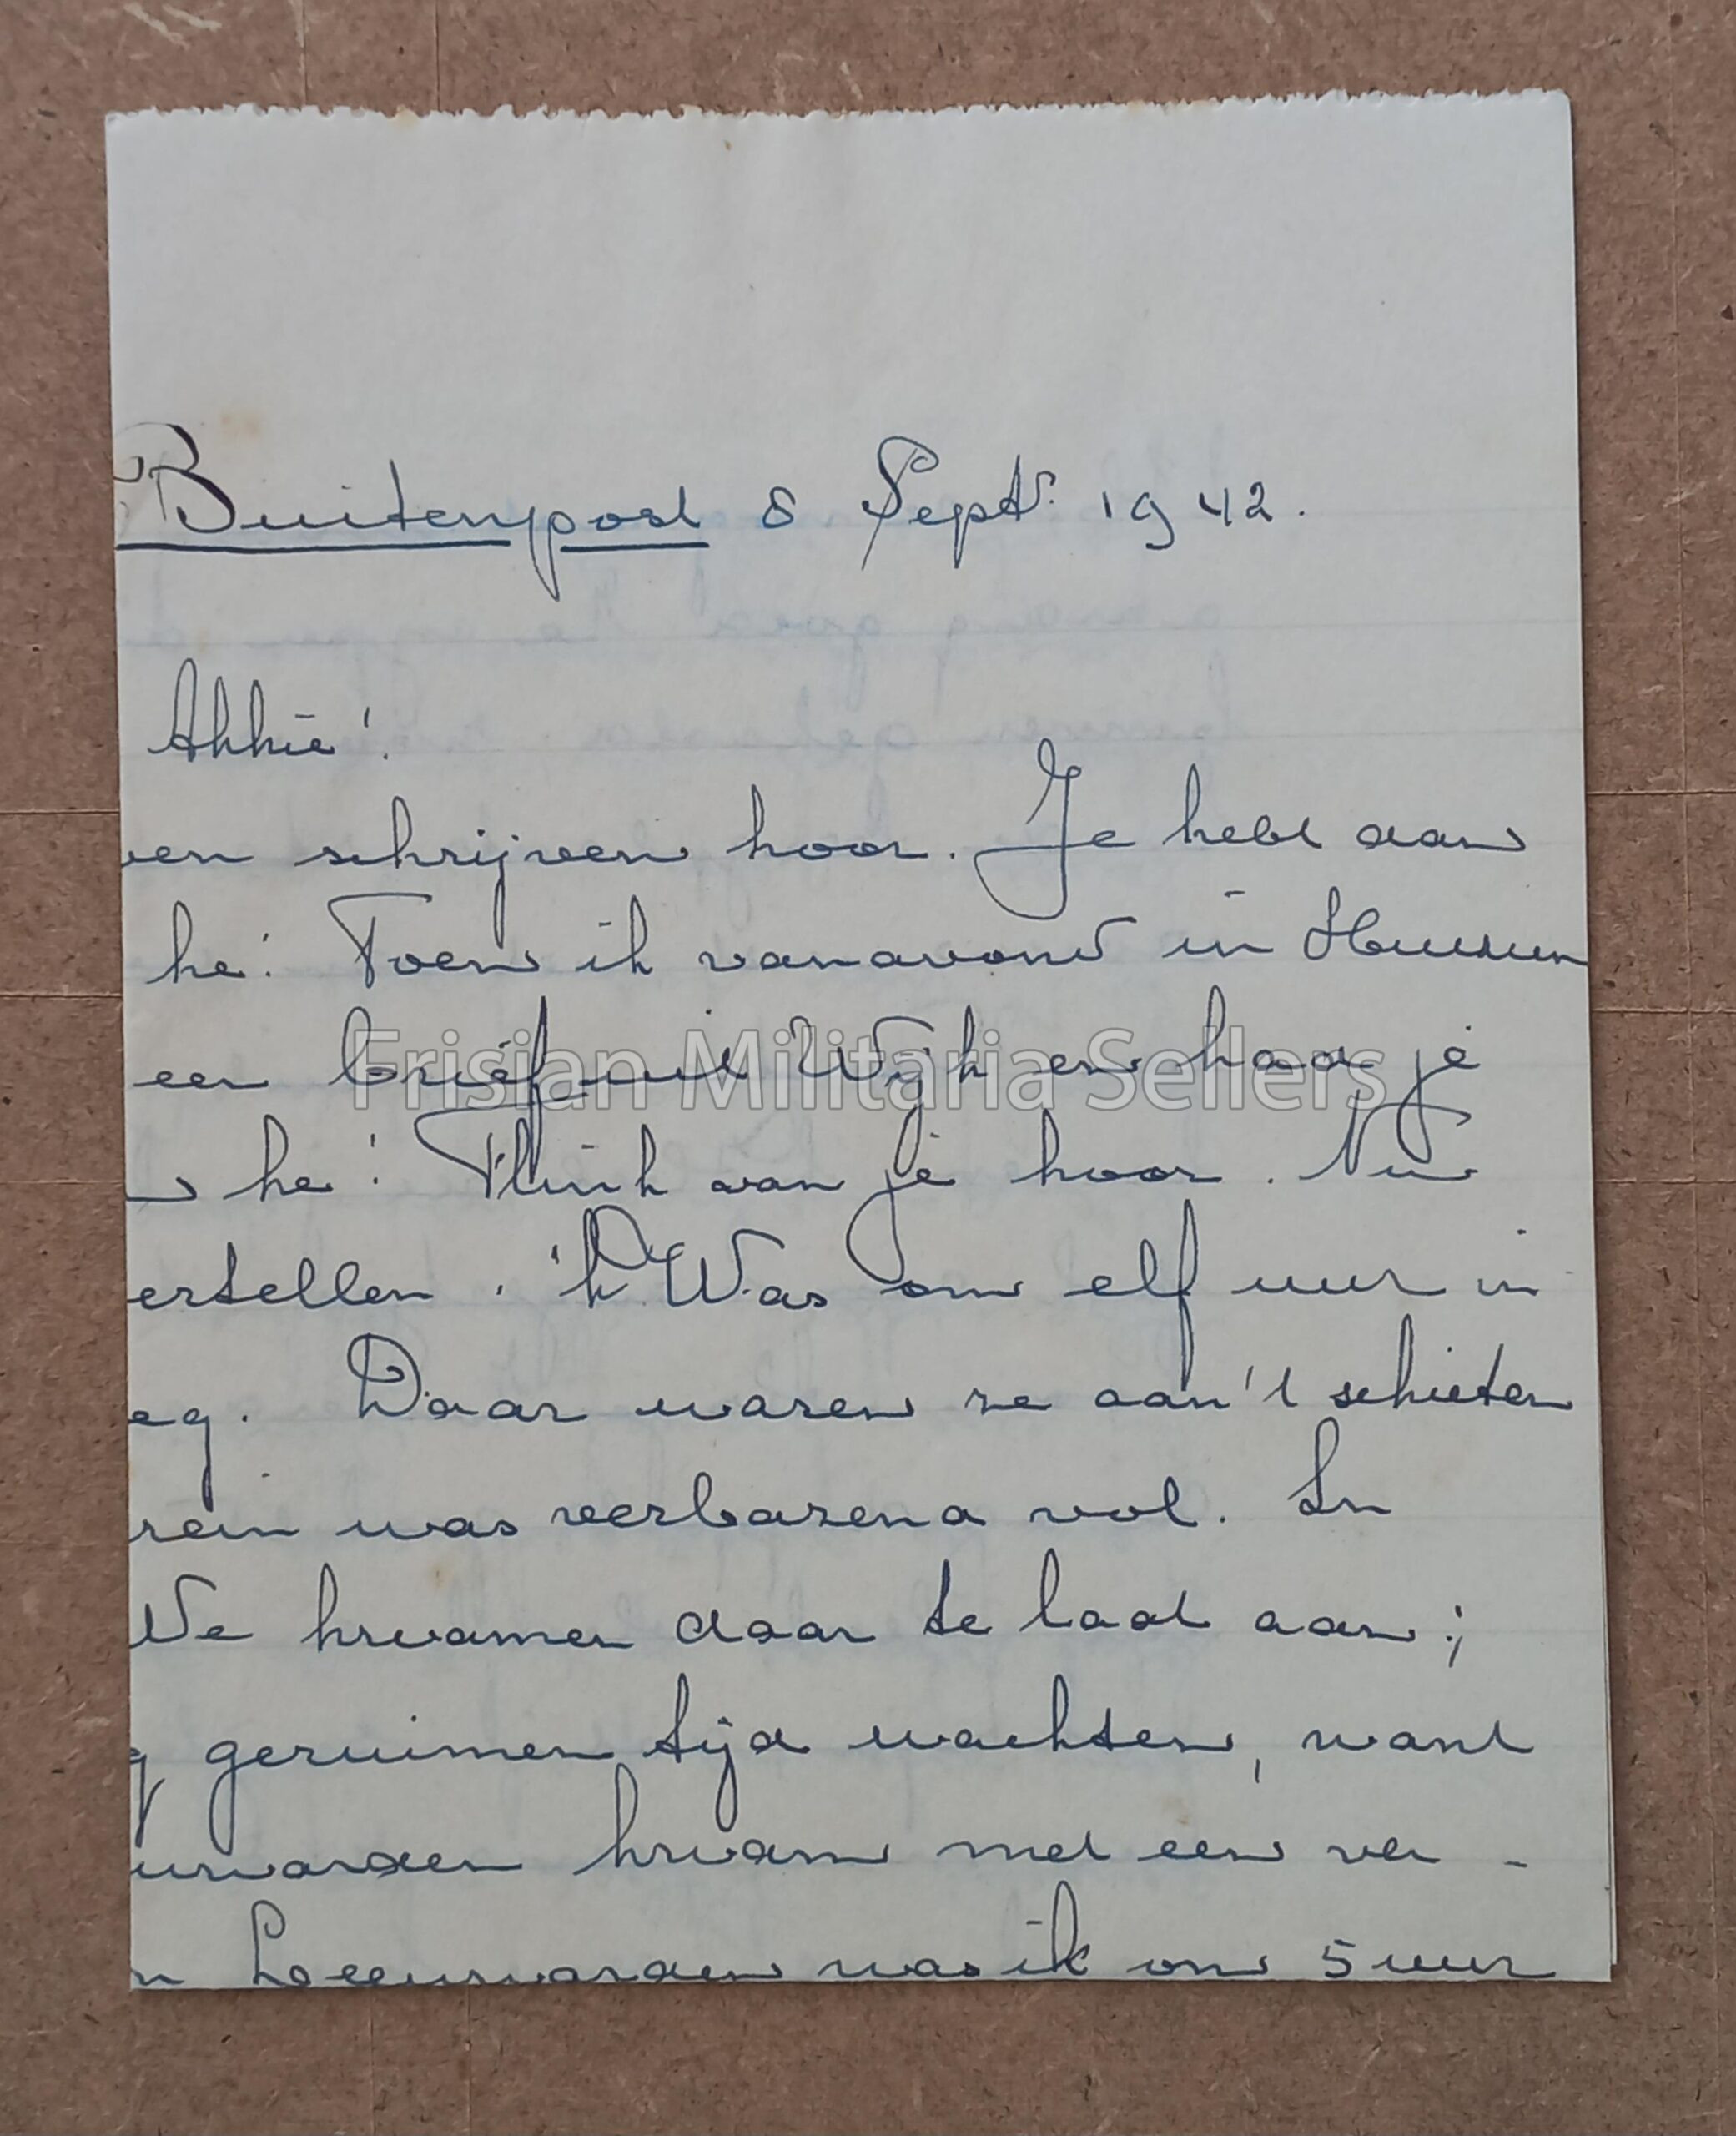 Buitenpost 8 Sept. 1942.
Akkie!
ven schrijven hoor. Je hebt aan
he! Toen ik vanavond in Huizum
een brief uit Wijk en had je
he! Flink van je hoor. Nu
ertellen. 'k Was om elf uur in
eg. Daar waren ze aan 't schieten
rein was verbazend vol. In
We kwamen daar te laat aan;
g geruimen tijd wachten, want
uwarden kwam met een ver-
n Leeuwarden was ik om 5 uur
Frisian Militaria Sellers